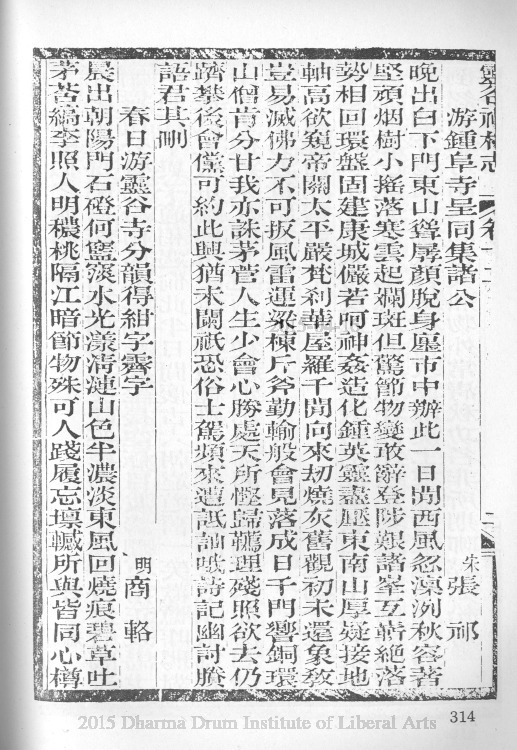 靈谷禪林志 卷十二
游鍾阜寺呈同集諸公
宋張祁
晚出白下門東山聳孱顏脫身塵市中辦此一日閒西風忽凜冽秋容著
堅頑烟樹小搖落寒雲起斕斑但驚節物變敢辭登陟艱諸峯互嶄絕落
勢相回環盤固建康城儼若呵神姦造化鍾英靈盡壓東南山厚疑接地
軸高欲窺帝關太平嚴梵刹華屋羅千閒向來劫燒灰舊觀初未還象教
豈易滅佛力不可扳風雷運梁棟斤斧勤輸般會見落成日千門響銅環
山僧肯分甘我亦誅茅菅人生少會心勝處天所慳歸鞿理殘照欲去仍
躋攀後會儻可約此興猶未闌祇恐俗士駕頻來遭詆訕噉詩記幽討騰
語君其刪
春日游靈谷寺分韻得紺字霽字
明商輅
晨出朝陽門石磴何𥧌窱水光漾清漣山色半濃淡東風回燒痕碧草吐
茅苫縞李照人明穠桃隔江暗節物殊可人踐履忘壈轗所與皆同心樽
2015 Dharma Drum Institute of Liberal Arts
314